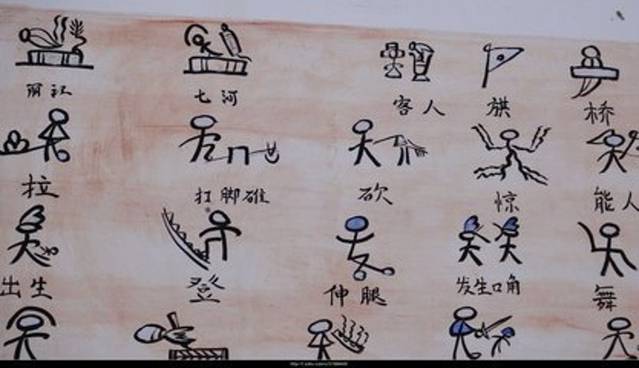 丽江 七河 客人 旗 桥
拉 打脚碓 砍 惊 能人
出生 登 伸腿 发生口角 舞